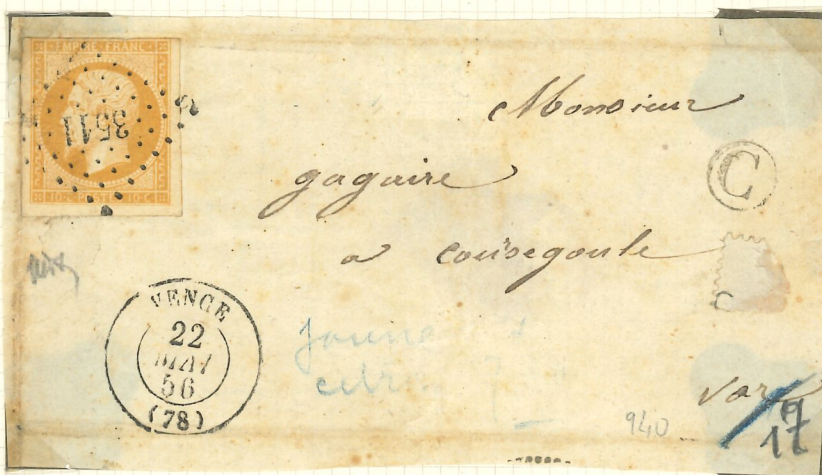 EMPIRE FRANC
3511
10·C·POSTES·10·C·
Monsieur
gagaire
a coursegoule
C
VENCE
22
MAI
56
(78)
jaune
var
940
17